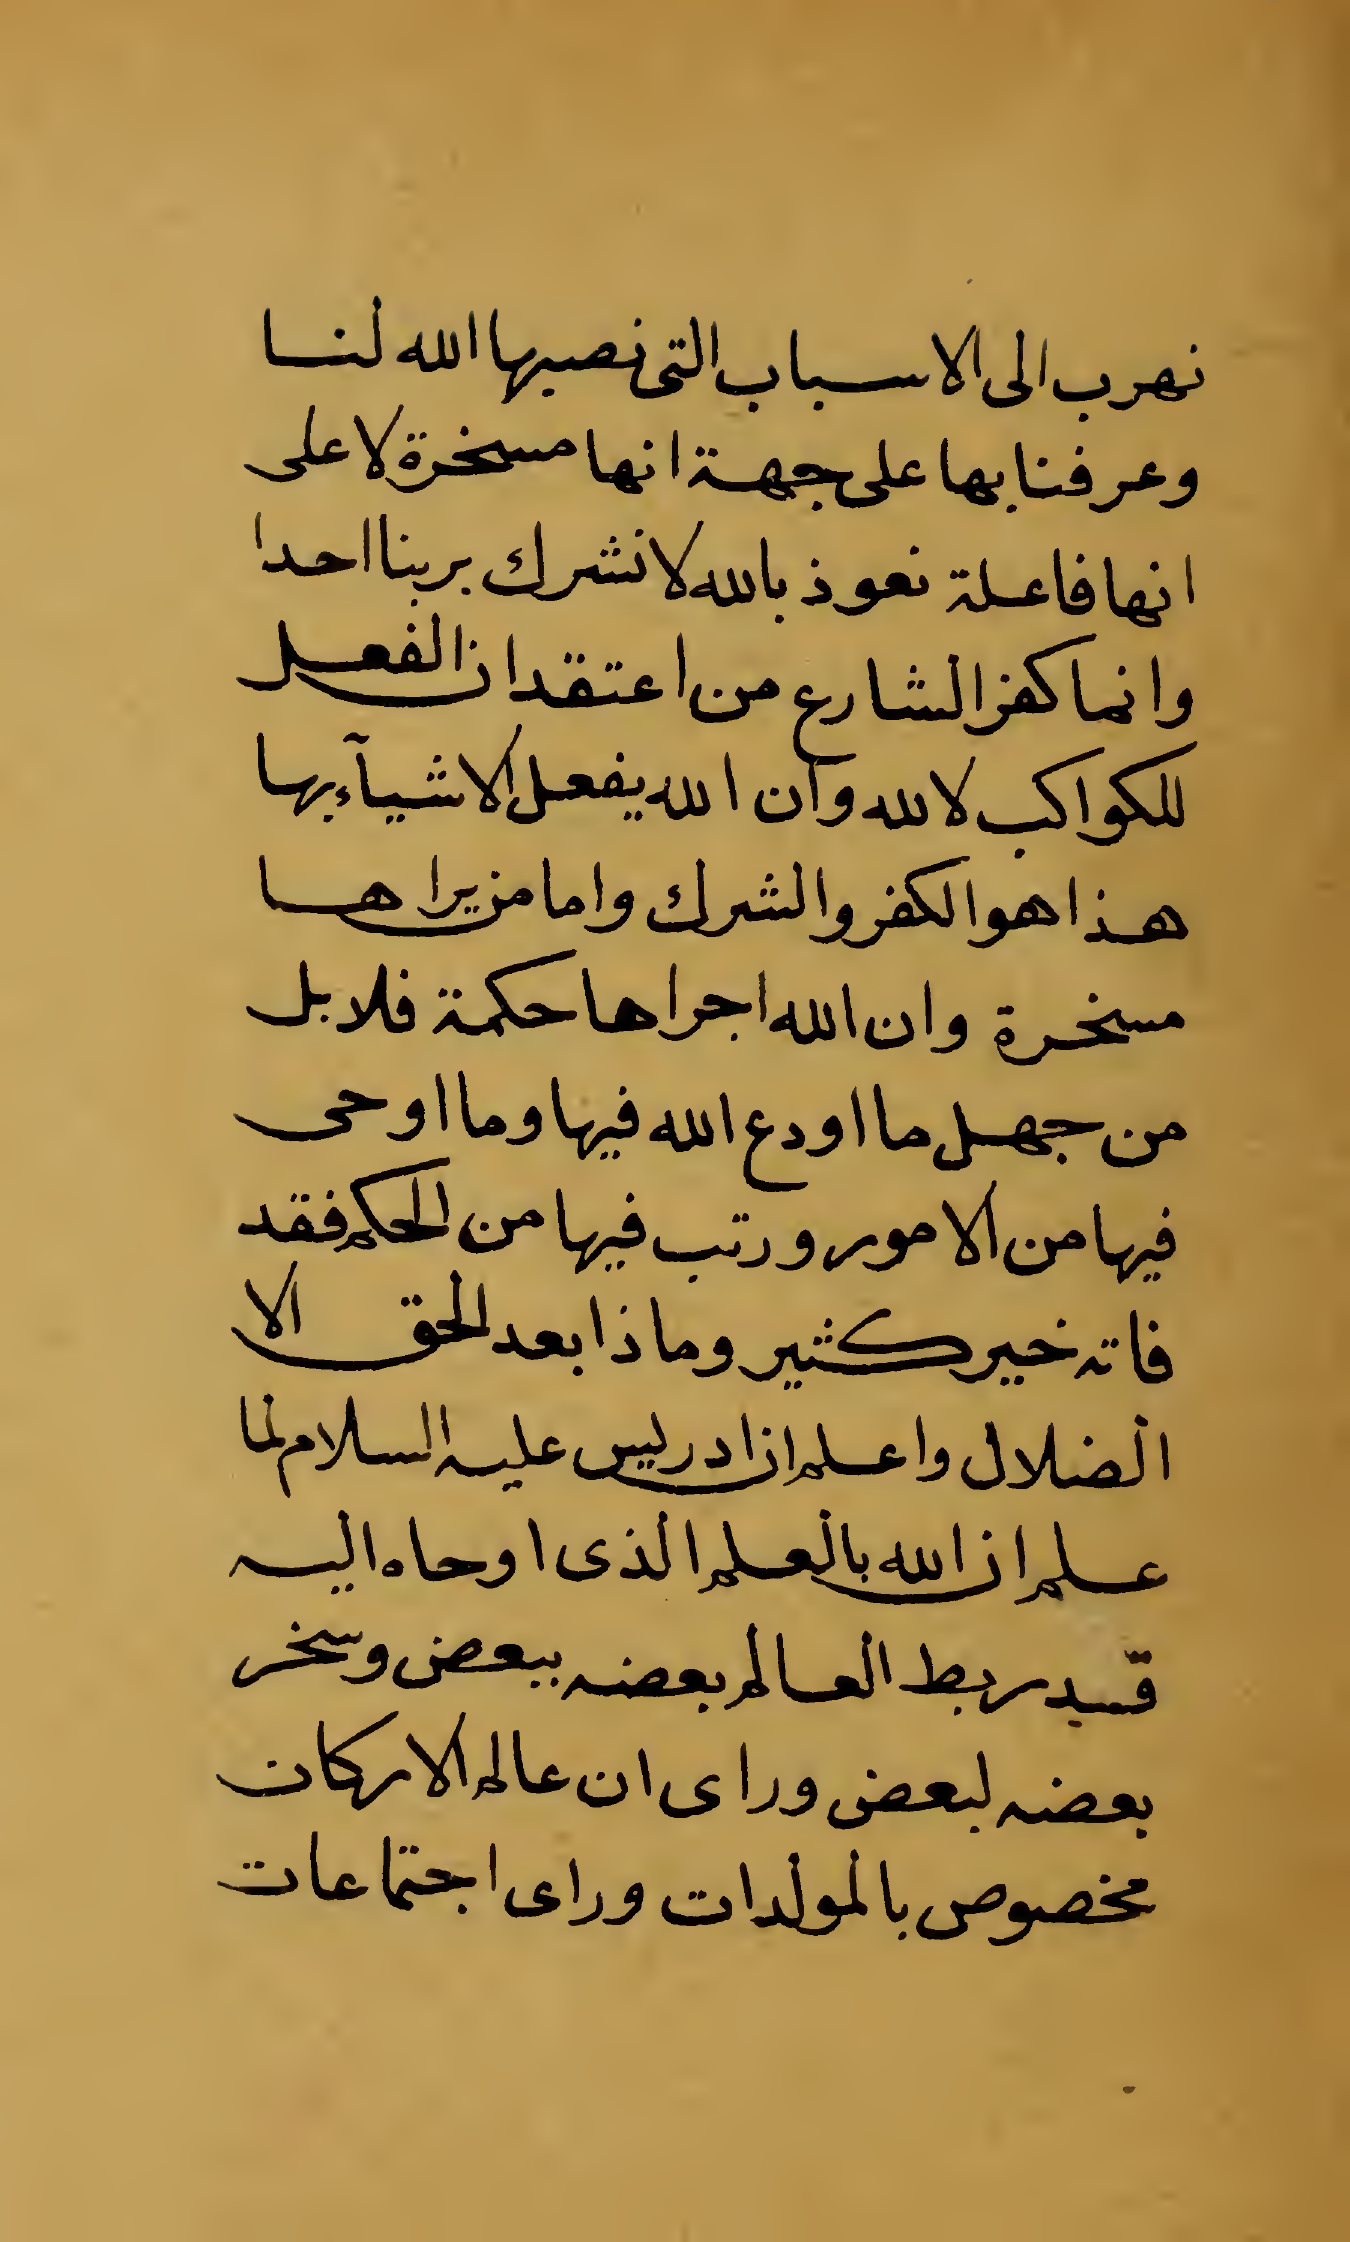 نهرب الى الاسباب التى نصبها الله لنا
وعرفنا بها على جهة انها مسخرة لا على
انها فاعلة نعوذ بالله لا نشرك بربنا احدا
وانما كفر الشارع من اعتقد ان الفعل
للكواكب لا لله وان الله يفعل الاشيآء بها
هذا هو الكفر والشرك واما من يراها
مسخرة وان الله اجراها حكمة فلا بل
من جهل ما اودع الله فيها وما اوحى
فيها من الامور ورتب فيها من الحكم فقد
فاته خير كثير وماذا بعد الحق الا
الضلال واعلم ان ادريس عليه السلام لما
علم ان الله بالعلم الذى اوحاه اليه
قد ربط العالم بعضه ببعض وسخر
بعضه لبعض وراى ان عالم الاركان
مخصوص بالمولدات وراى اجتماعات